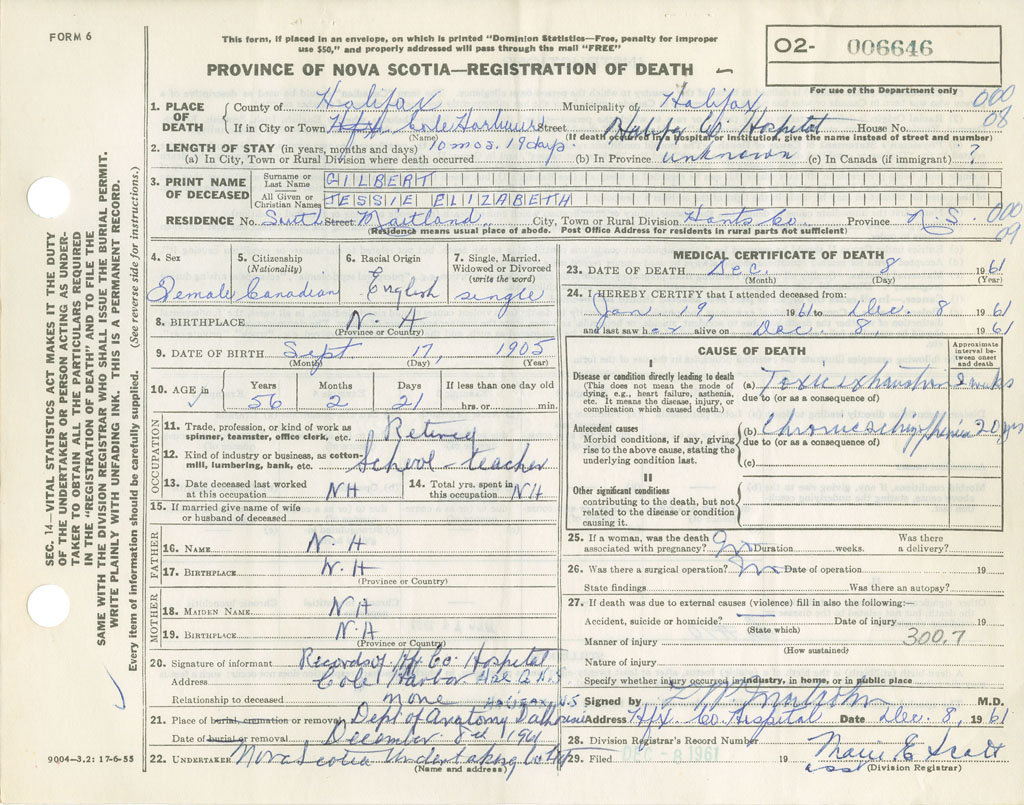 FORM 6
This form, if placed in an envelope, on which is printed "Dominion Statistics—Free, penalty for improper
use $50," and properly addressed will pass through the mail "FREE"
PROVINCE OF NOVA SCOTIA—REGISTRATION OF DEATH
O2- 006646
For use of the Department only
000
08
1. PLACE OF DEATH
County of Halifax Municipality of Halifax
If in City or Town Hfx Cole Harbour Street Halifax Co. Hospital House No.
(Name) (If death occurred in a hospital or institution, give the name instead of street and number)
2. LENGTH OF STAY (in years, months and days) 10 mos. 19 days.
(a) In City, Town or Rural Division where death occurred (b) In Province unknown (c) In Canada (if immigrant) ?
3. PRINT NAME OF DECEASED
Surname or Last Name GILBERT
All Given or Christian Names JESSIE ELIZABETH
RESIDENCE No. South Street Maitland City, Town or Rural Division Hants Co Province N.S.
000
09
(Residence means usual place of abode. Post Office Address for residents in rural parts not sufficient)
4. Sex Female
5. Citizenship (Nationality) Canadian
6. Racial Origin English
7. Single, Married, Widowed or Divorced (write the word) single
8. BIRTHPLACE N.A
(Province or Country)
9. DATE OF BIRTH Sept 17, 1905
(Month) (Day) (Year)
10. AGE in Years 56 Months 2 Days 21 If less than one day old hrs. or min.
OCCUPATION
11. Trade, profession, or kind of work as spinner, teamster, office clerk, etc. Retired
12. Kind of industry or business, as cotton-mill, lumbering, bank, etc. School-teacher
13. Date deceased last worked at this occupation NA
14. Total yrs. spent in this occupation N/A
15. If married give name of wife or husband of deceased
FATHER
16. NAME N.A
17. BIRTHPLACE N.A
(Province or Country)
MOTHER
18. MAIDEN NAME NA
19. BIRTHPLACE N.A
(Province or Country)
20. Signature of informant Records of Hfx Co. Hospital
Address Cole Harbor
HALIFAX, N.S
Relationship to deceased none
21. Place of burial, cremation or removal Dept of Anatomy Dalhousie
Date of burial or removal December 8th 1961
22. UNDERTAKER Nova Scotia Undertaking Co
(Name and address)
MEDICAL CERTIFICATE OF DEATH
23. DATE OF DEATH Dec. 8 1961
(Month) (Day) (Year)
24. I HEREBY CERTIFY that I attended deceased from:
Jan 19, 1961 to Dec. 8 1961
and last saw her alive on Dec. 8 1961
CAUSE OF DEATH
Approximate interval between onset and death
I
Disease or condition directly leading to death
(This does not mean the mode of dying, e.g., heart failure, asthenia, etc. It means the disease, injury, or complication which caused death.)
(a) Toxic exhaustion 2 weeks
due to (or as a consequence of)
Antecedent causes
Morbid conditions, if any, giving rise to the above cause, stating the underlying condition last.
(b) Chronic schizophrenia 20 yrs
due to (or as a consequence of)
(c)
II
Other significant conditions
contributing to the death, but not related to the disease or condition causing it.
25. If a woman, was the death associated with pregnancy? No Duration weeks. Was there a delivery?
26. Was there a surgical operation? No Date of operation 19
State findings Was there an autopsy?
27. If death was due to external causes (violence) fill in also the following:
Accident, suicide or homicide? Date of injury 19
(State which)
Manner of injury 300.7
(How sustained)
Nature of injury
Specify whether injury occurred in industry, in home, or in public place
Signed by M.D.
Address Hfx. Co. Hospital Date Dec. 8, 1961
28. Division Registrar's Record Number
29. Filed 8 1961 19 Mary E Scott
ass (Division Registrar)
SEC. 14—VITAL STATISTICS ACT MAKES IT THE DUTY
OF THE UNDERTAKER OR PERSON ACTING AS UNDER-
TAKER TO OBTAIN ALL THE PARTICULARS REQUIRED
IN THE "REGISTRATION OF DEATH" AND TO FILE THE
SAME WITH THE DIVISION REGISTRAR WHO SHALL ISSUE THE BURIAL PERMIT.
WRITE PLAINLY WITH UNFADING INK. THIS IS A PERMANENT RECORD.
Every item of information should be carefully supplied. (See reverse side for instructions.)
9004—3.2: 17-6-55